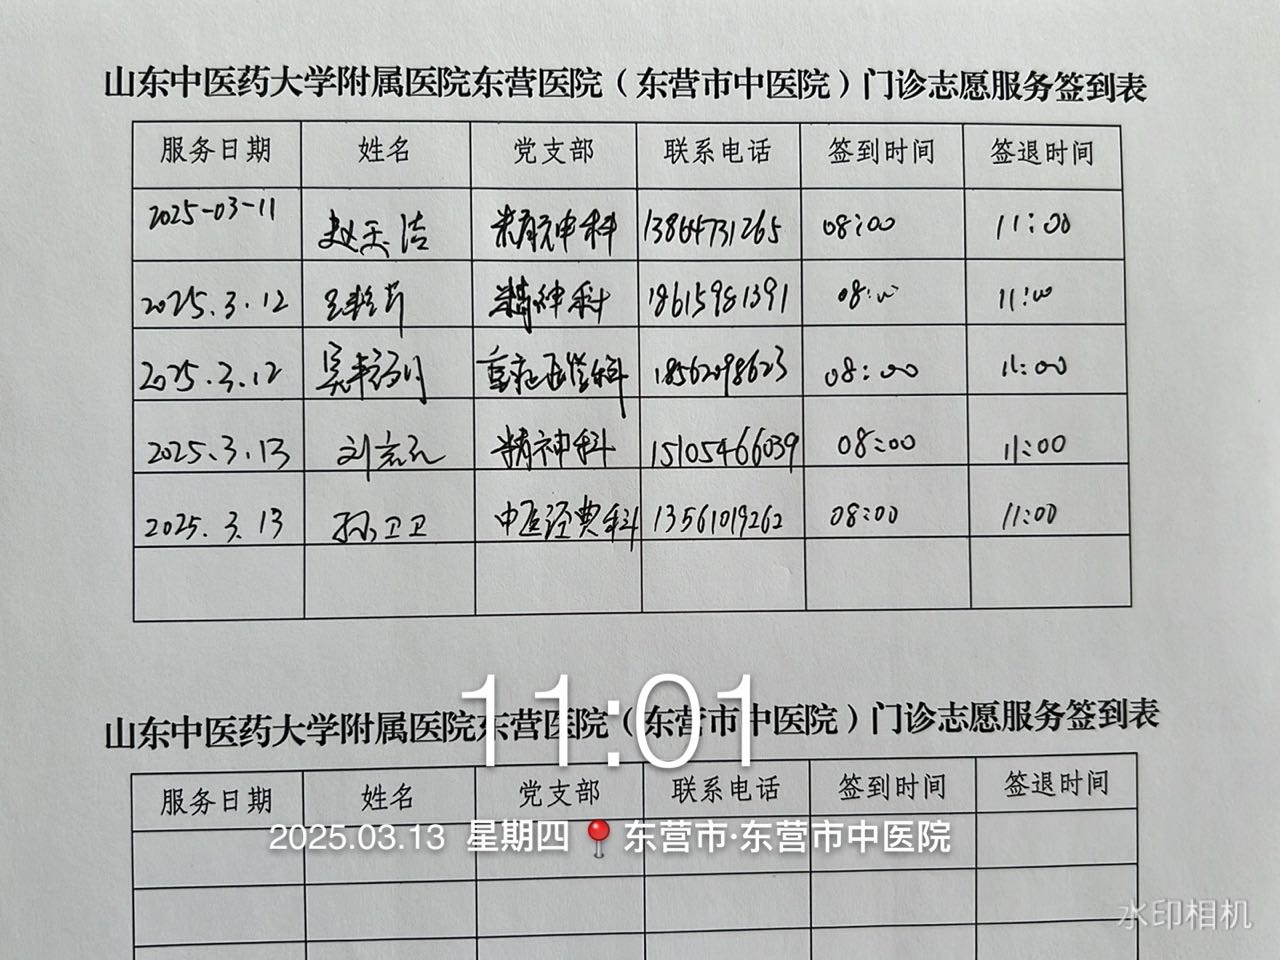 山东中医药大学附属医院东营医院（东营市中医院）门诊志愿服务签到表
服务日期 姓名 党支部 联系电话 签到时间 签退时间
2025-03-11 赵天洁 精神科 13864731265 08:00 11:00
2025.3.12 精神科 18615981391 08:00 11:00
2025.3.12 重症医学科 18562098623 08:00 11:00
2025.3.13 刘 精神科 15105466039 08:00 11:00
2025.3.13 孙卫卫 中医经典科 13561019262 08:00 11:00
11:01
山东中医药大学附属医院东营医院（东营市中医院）门诊志愿服务签到表
服务日期 姓名 党支部 联系电话 签到时间 签退时间
2025.03.13 星期四 东营市·东营市中医院
水印相机